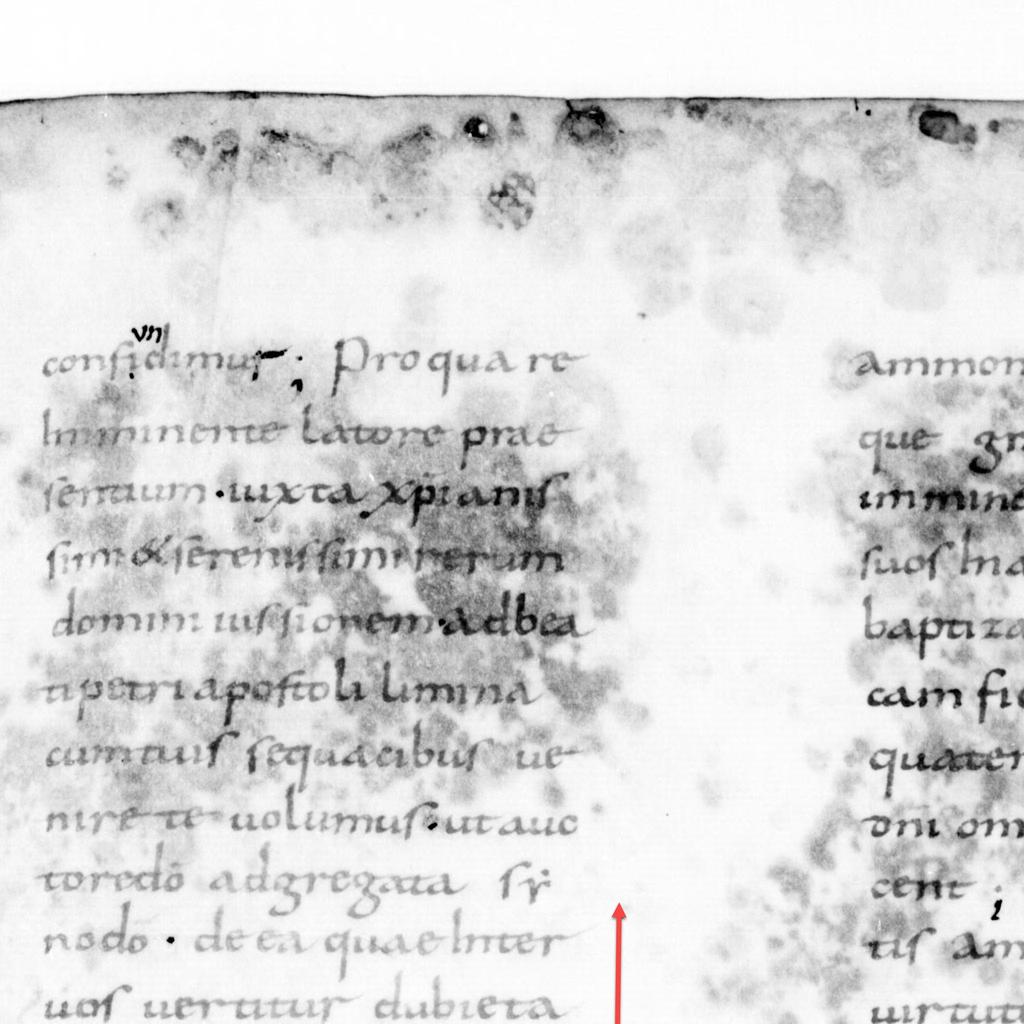 confidimus; Pro qua re
vn
Imminente latore prae
sentium · iuxta xp̄ianis
simi & serenissimi rerum
domini iussionem · ad bea
ti petri apostoli limina
cum tuis sequacibus ue
nire te uolumus · ut auc
tore dō adgregata sẏ
nodo · de ea quae Inter
uos uertitur dubieta
ammon
que gr
immine
suos In a
baptiza
cam fi
quaten
dn̄i om
cent ;
tis am
uirtut